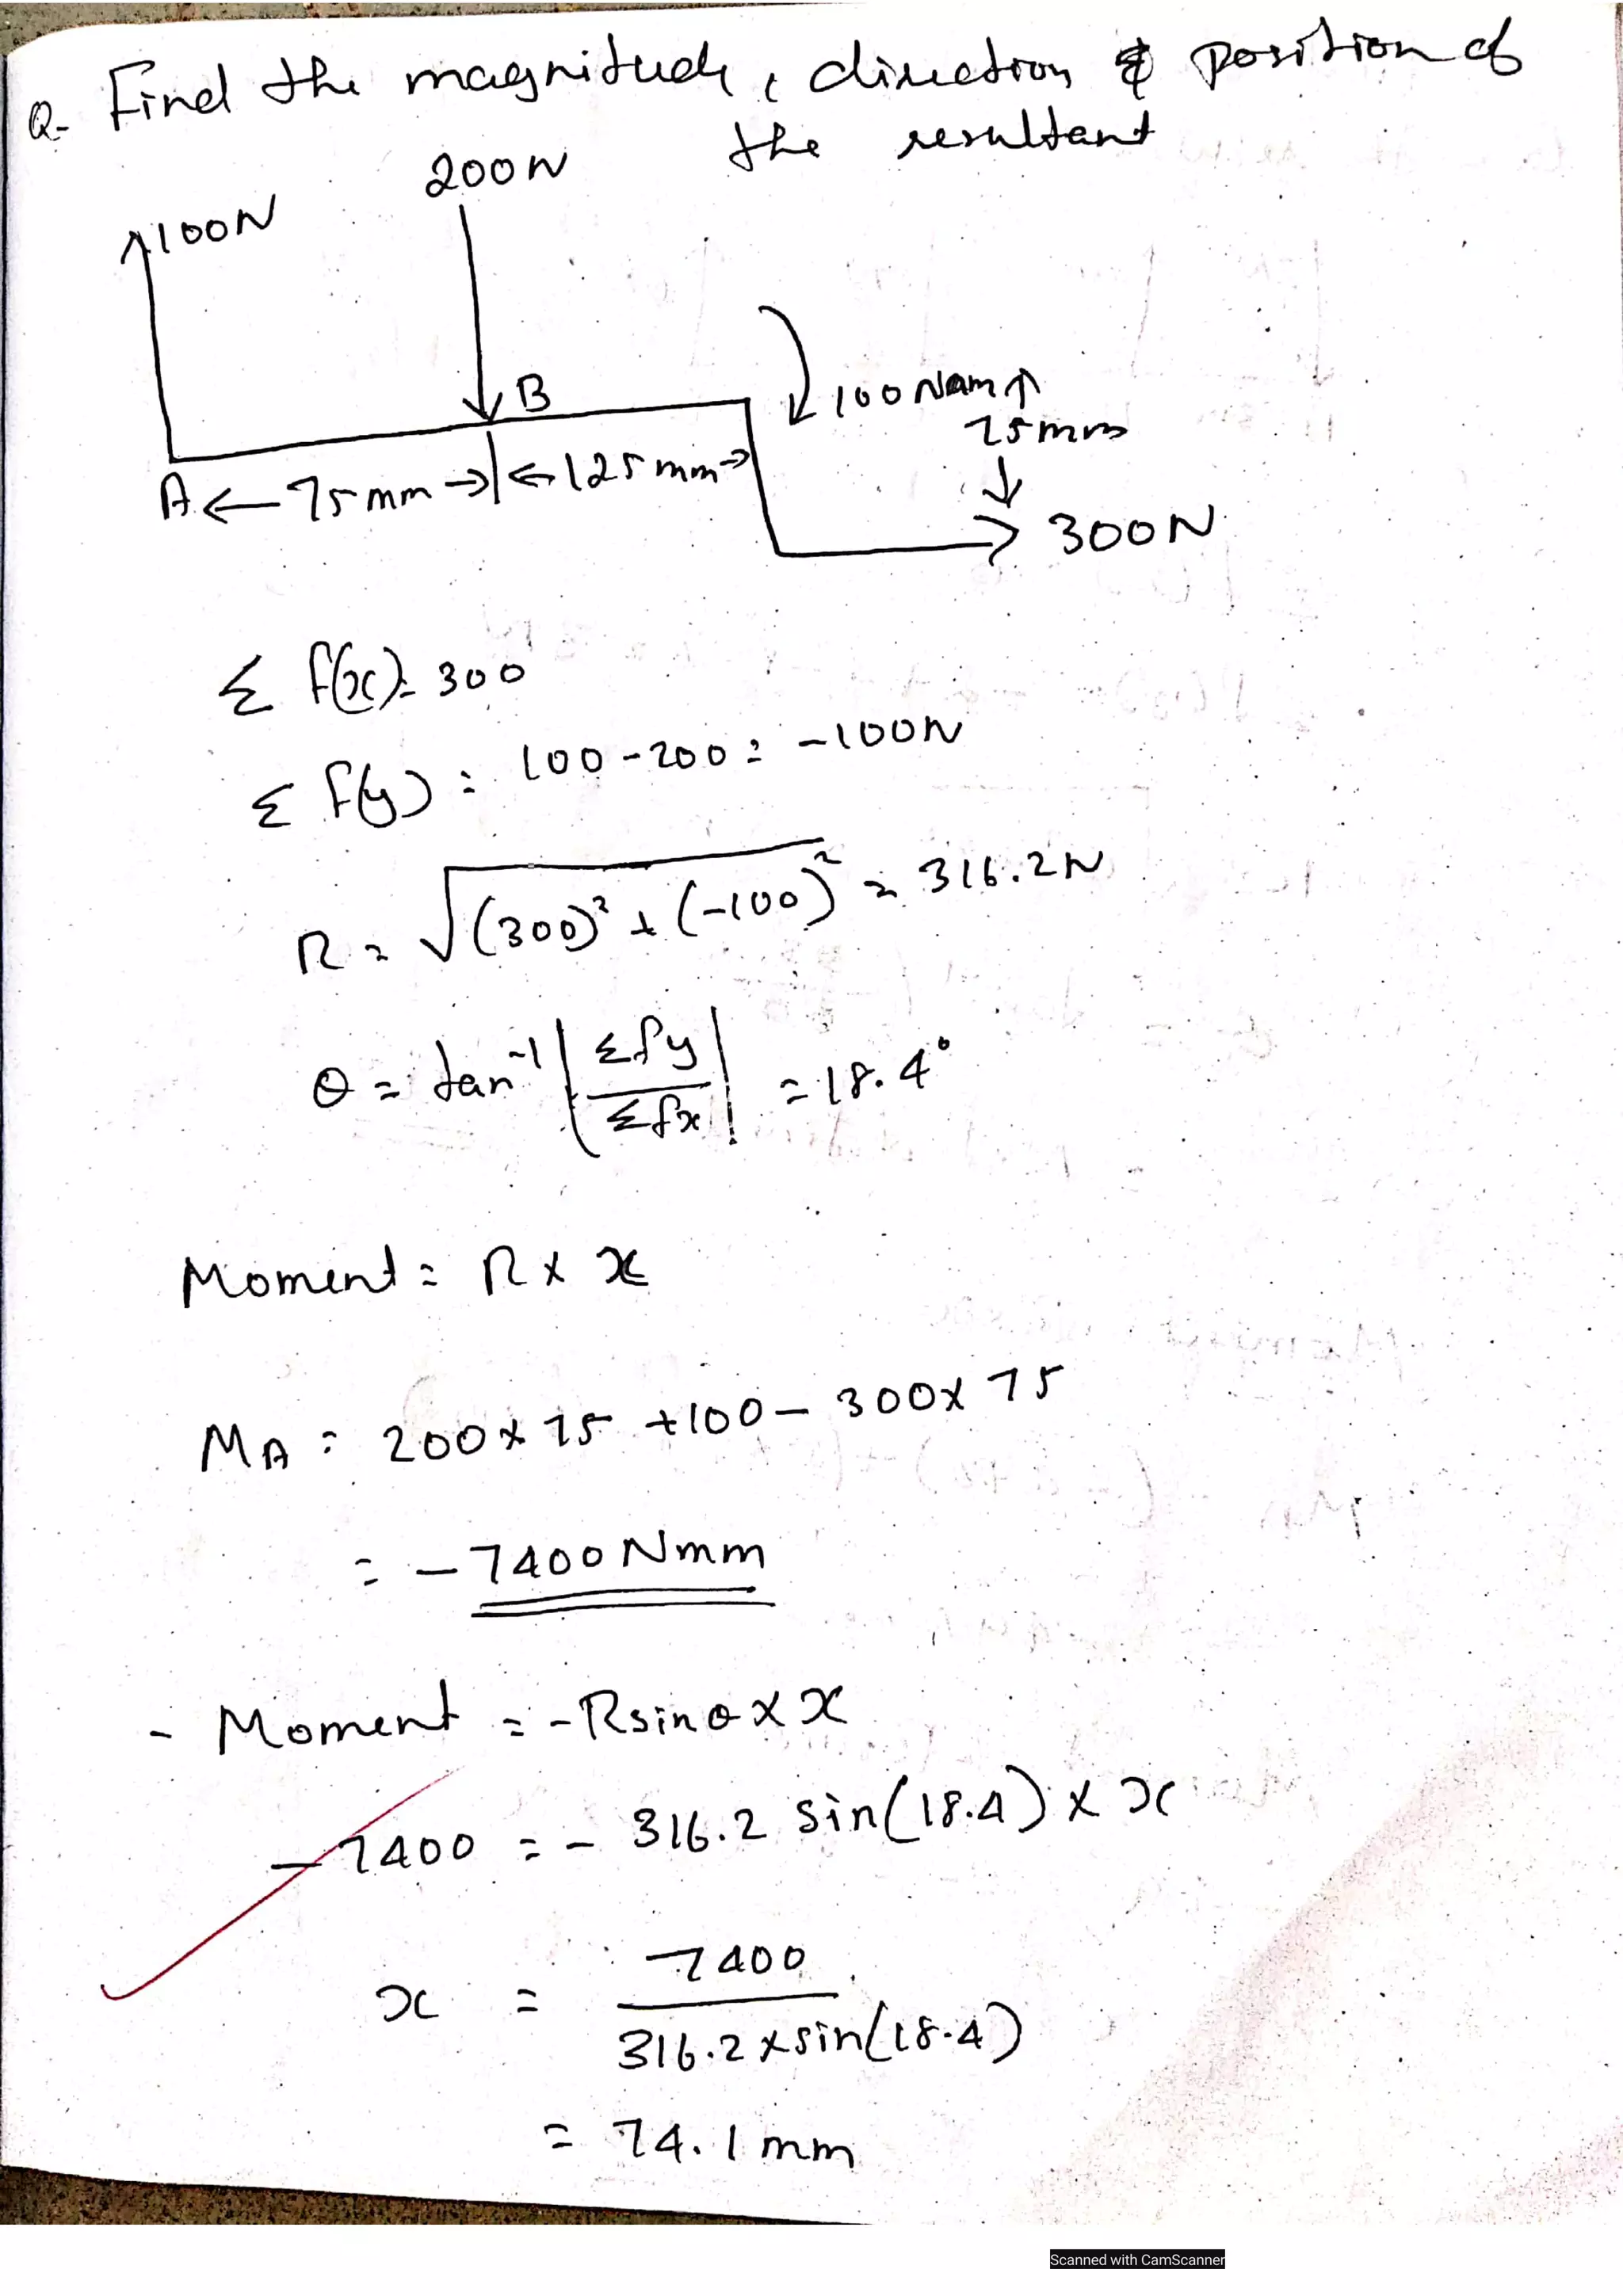 Q- Find the magnitude, direction & position of
the resultant
200N
100N
B
100 Nmm
75mm
A ← 75mm → ← 125 mm →
300N
Σ f(x) = 300
Σ f(y) = 100 - 200 = -100N
R = √(300)² + (-100)² = 316.2N
θ = tan⁻¹ | Σfy / Σfx | = 18.4°
Moment = R x x
MA = 200 x 75 + 100 - 300 x 75
= - 7400 Nmm
- Moment = - R sin θ x x
- 7400 = - 316.2 sin(18.4) x x
x = 7400 / 316.2 x sin(18.4)
= 74.1 mm
Scanned with CamScanner